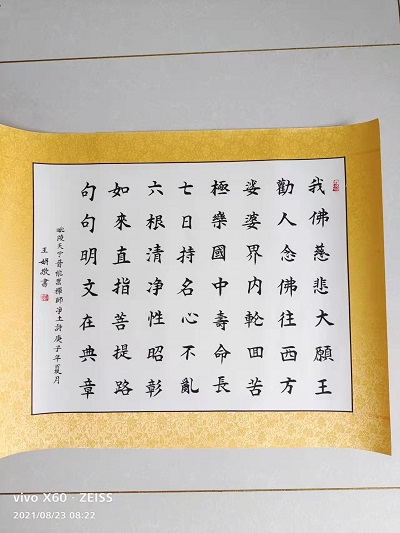 我佛慈悲大願王
勸人念佛往西方
娑婆界内輪回苦
極樂國中壽命長
七日持名心不亂
六根清净性昭彰
如來直指菩提路
句句明文在典章
毗陵天宁普能嵩禪師净土詩庚子年夏月
王娟敬書
vivo X60 · ZEISS
2021/08/23 08:22